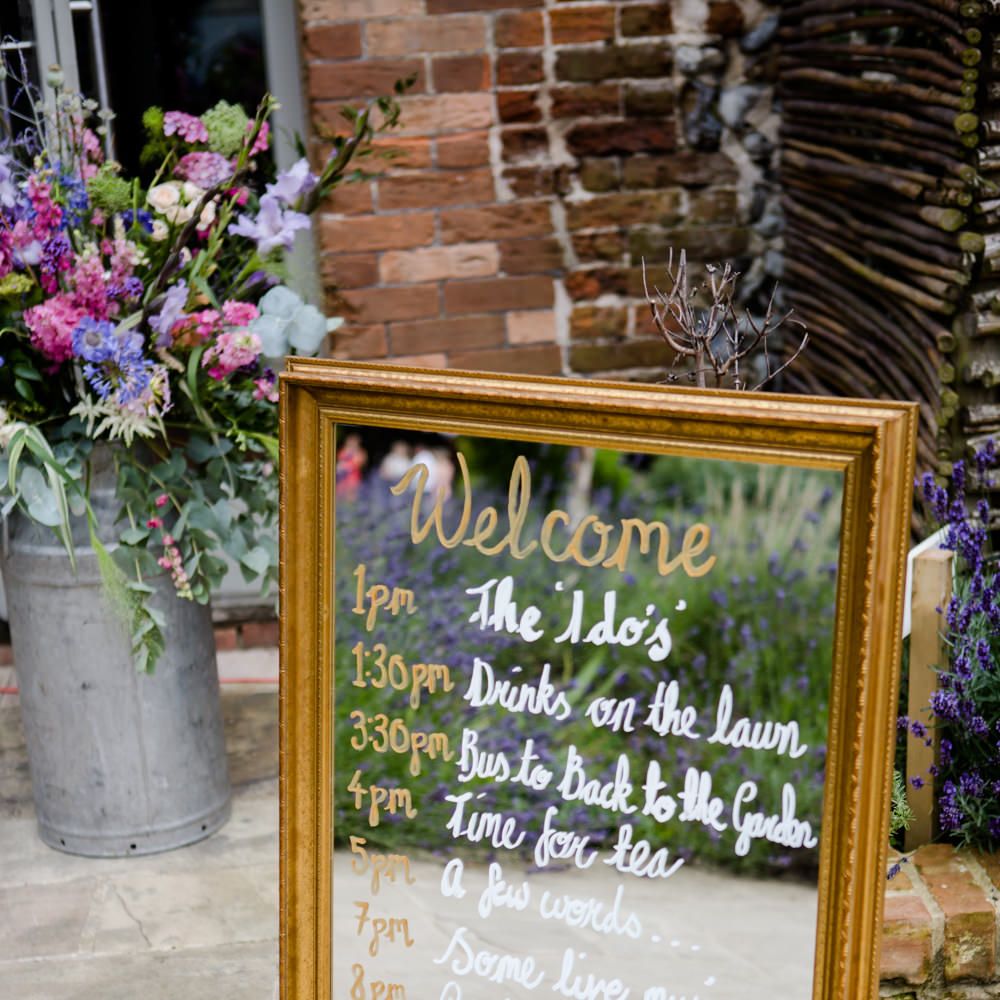 Welcome
1pm The 'I do's'
1:30pm Drinks on the lawn
3:30pm Bus to Back to the Garden
4pm Time for tea
5pm A few words...
7pm Some live
8pm